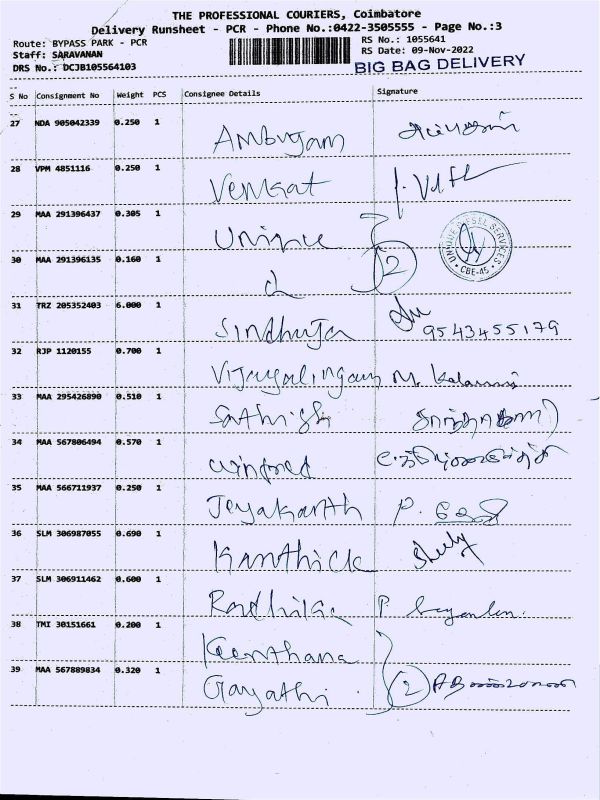 THE PROFESSIONAL COURIERS, Coimbatore
Delivery Runsheet - PCR - Phone No.:0422-3505555 - Page No.:3
Route: BYPASS PARK - PCR
Staff: SARAVANAN
DRS No.: DCJB105564103
RS No.: 1055641
RS Date: 09-Nov-2022
BIG BAG DELIVERY
S No Consignment No Weight PCS Consignee Details Signature
27 NDA 905042339 0.250 1 Ambujam
28 VPM 4851116 0.250 1 Venkat
29 MAA 291396437 0.305 1 Unique
30 MAA 291396135 0.160 1 2
UNIQUE DIESEL SERVICES
CBE-45
31 TRZ 205352403 6.000 1 Sindhuja 9543455179
32 RJP 1120155 0.700 1 Vijayalingam M.
33 MAA 295426890 0.510 1 Sathish
34 MAA 567806494 0.570 1
35 MAA 566711937 0.250 1 Jeyakanth P.
36 SLM 306987055 0.690 1 Kanthick
37 SLM 306911462 0.600 1 Radhika P.
38 TMI 30151661 0.200 1 Keerthana
39 MAA 567889834 0.320 1 Gayathi 2